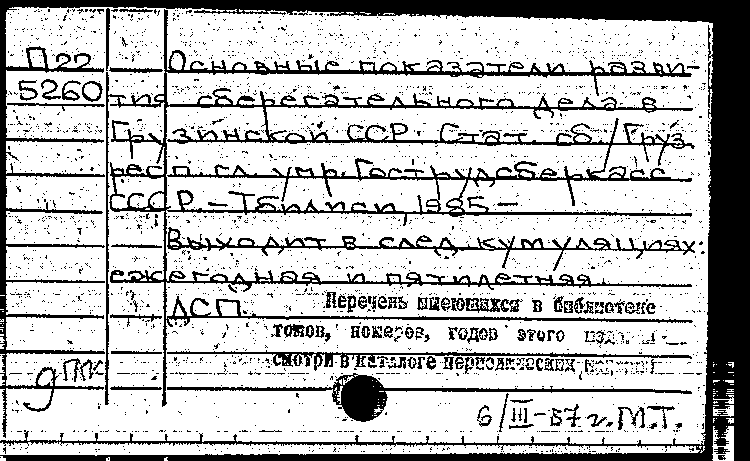 П22 Основные показатели разви-
5260 тия сберегательного дела в
Грузинской ССР. Стат. сб./Груз.
респ. гл. упр. Гострудсберкасс
СССР.-Тбилиси, 1985-
Выходит в след. кумуляциях:
ежегодная и пятилетняя.
ДСП. Перечень имеющихся в библиотеке
томов, номеров, годов этого
смотри в каталоге периодических
9 ПКК
6/III-87 г. М.Т.